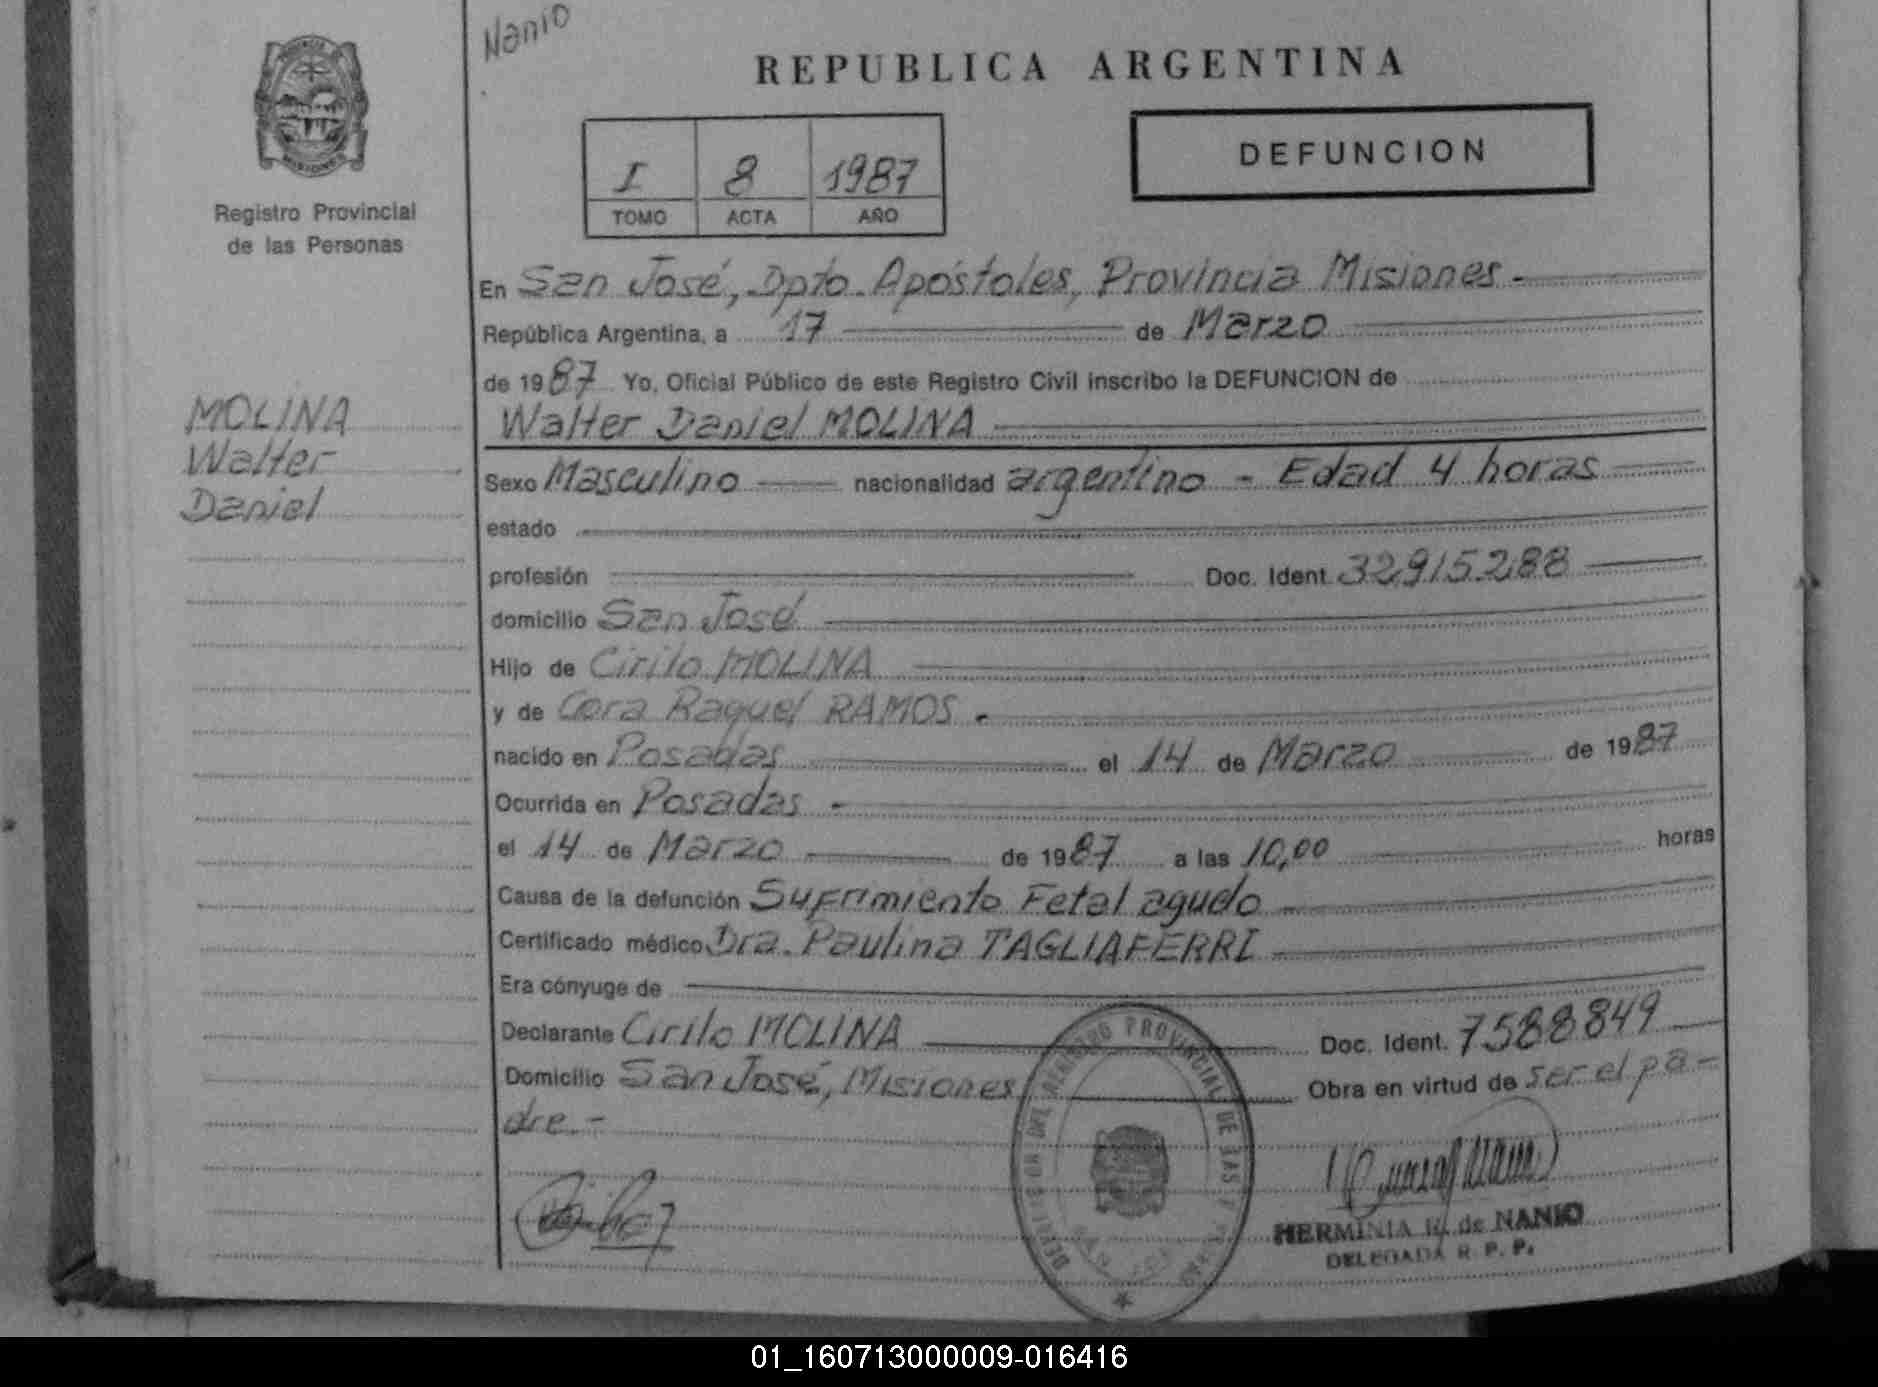 Nanio
REPUBLICA ARGENTINA
I 8 1987
TOMO ACTA AÑO
DEFUNCION
MISIONES
Registro Provincial
de las Personas
MOLINA
Walter
Daniel
En San José, Dpto. Apóstoles, Provincia Misiones -
República Argentina, a 17 de Marzo
de 1987 Yo, Oficial Público de este Registro Civil inscribo la DEFUNCION de
Walter Daniel MOLINA
Sexo Masculino nacionalidad argentino - Edad 4 horas
estado
profesión Doc. Ident. 32.915.288
domicilio San José
Hijo de Cirilo MOLINA
y de Cora Raquel RAMOS.
nacido en Posadas el 14 de Marzo de 1987
Ocurrida en Posadas -
el 14 de Marzo de 1987 a las 10,00 horas
Causa de la defunción Sufrimiento Fetal agudo
Certificado médico Dra. Paulina TAGLIAFERRI
Era cónyuge de
Declarante Cirilo MOLINA Doc. Ident. 7588849
Domicilio San José, Misiones Obra en virtud de ser el pa-
dre.-
REGISTRO PROVINCIAL DE LAS
HERMINIA de NANIO
DELEGADA R. P. P.
01_160713000009-016416